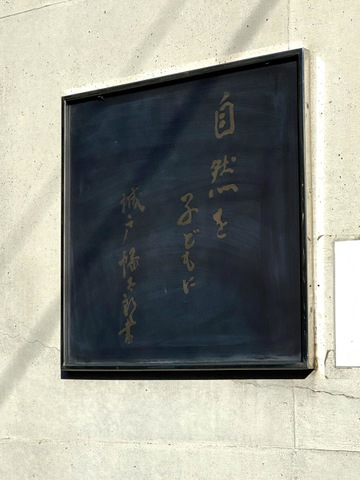 自然を
子どもに
城戸幡太郎書